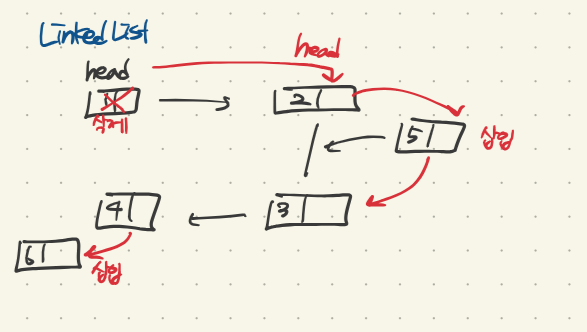 Linked List
head
head
1
삭제
2
5
삽입
4
3
6
삽입